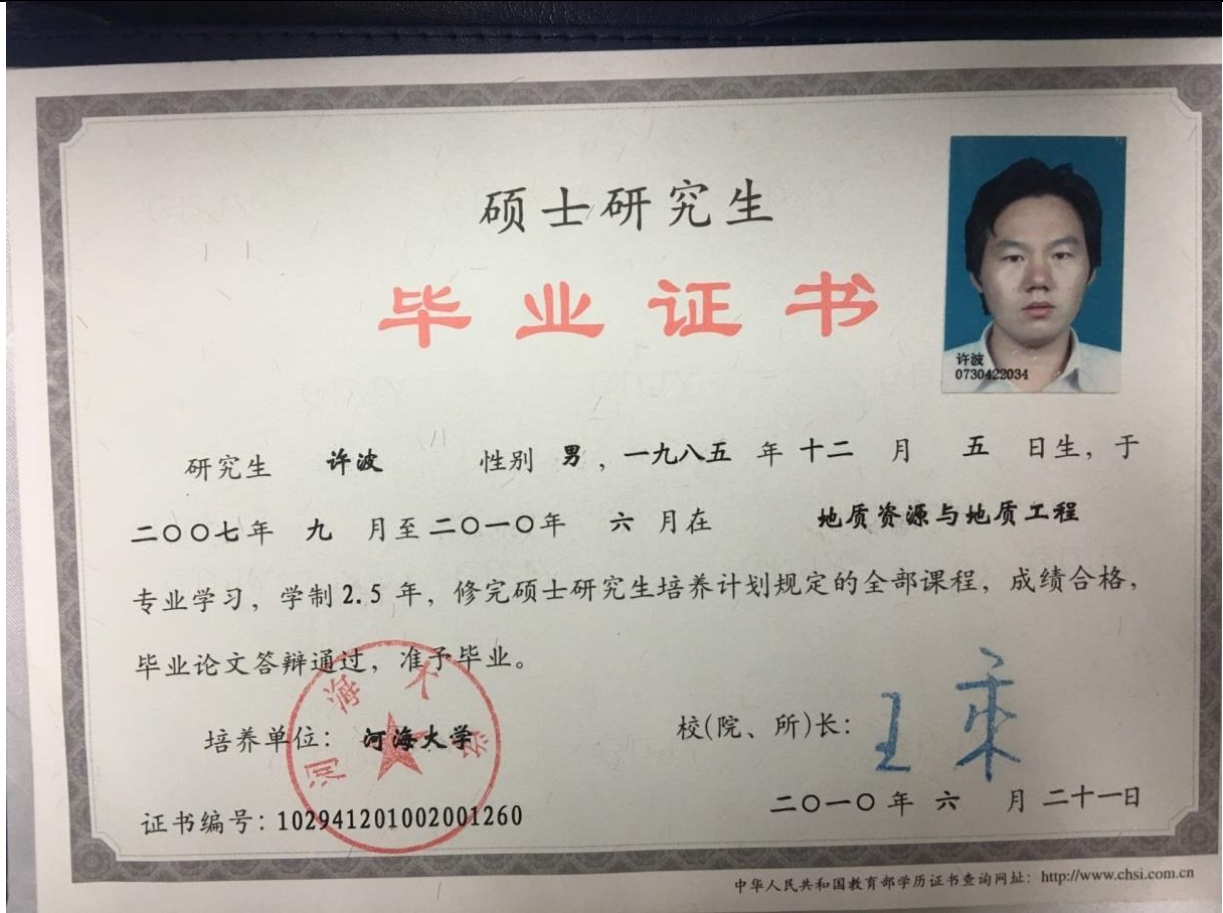 硕士研究生
毕业证书
许波
0730422034
研究生 许波 性别 男，一九八五 年 十二 月 五 日生，于
二〇〇七年 九 月至二〇一〇年 六 月在 地质资源与地质工程
专业学习，学制2.5 年，修完硕士研究生培养计划规定的全部课程，成绩合格，
毕业论文答辩通过，准予毕业。
河海大学
培养单位：河海大学
校(院、所)长：
王乘
证书编号：102941201002001260
二〇一〇 年 六 月 二十一日
中华人民共和国教育部学历证书查询网址：http://www.chsi.com.cn